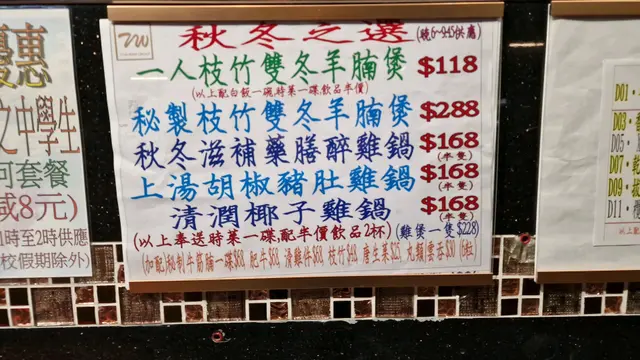 秋冬之選 (晚6-9:45供應)
一人枝竹雙冬羊腩煲 $118
(以上配白飯一碗,時菜一碟飲品半價)
秘製枝竹雙冬羊腩煲 $288
秋冬滋補藥膳醉雞鍋 $168 (半隻)
上湯胡椒豬肚雞鍋 $168 (半隻)
清潤椰子雞鍋 $168 (半隻)
(以上奉送時菜一碟,配半價飲品2杯) (雞煲一隻 $228)
優惠
之中學生
何套餐
減8元)
1時至2時供應
校假期除外)
D01
D03
D05
D07
D09
D11